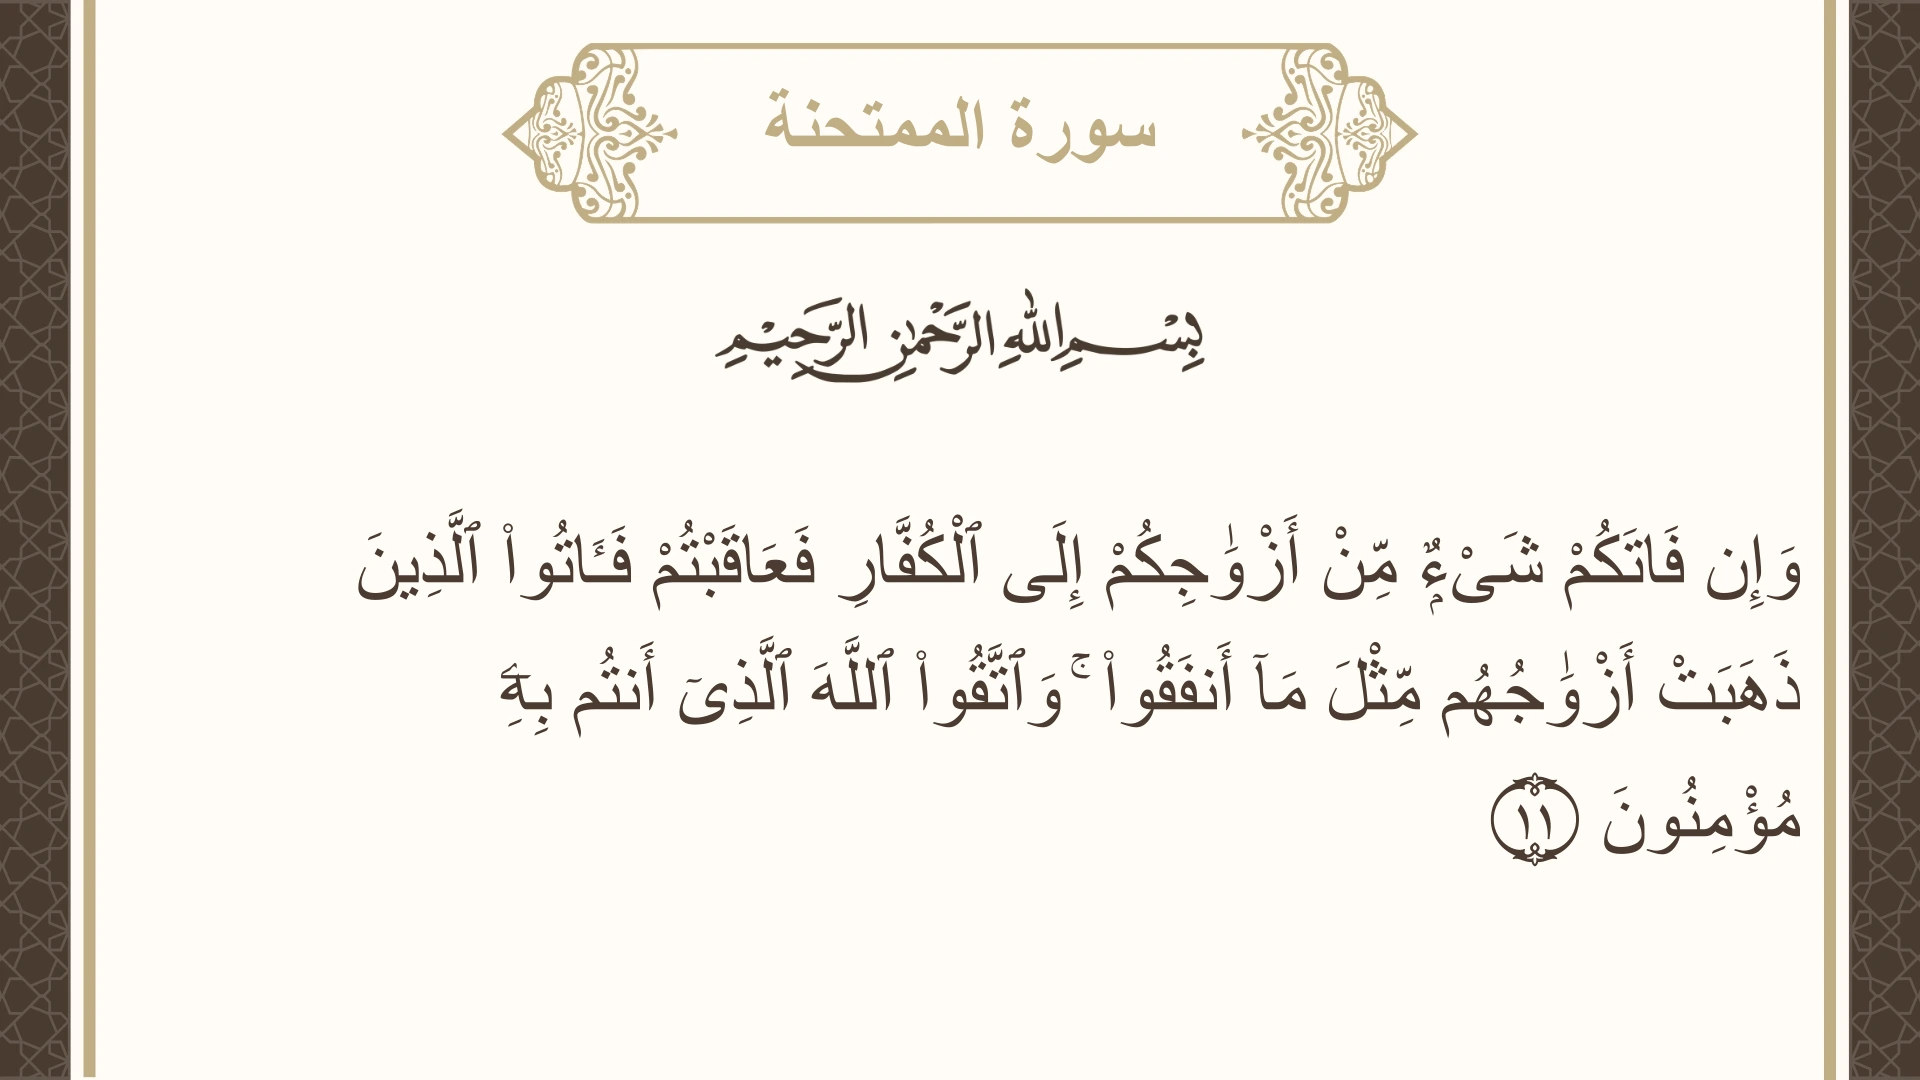 سورة الممتحنة
بِسْمِ اللهِ الرَّحْمٰنِ الرَّحِيْمِ
وَإِن فَاتَكُمْ شَىْءٌۭ مِّنْ أَزْوَٰجِكُمْ إِلَى ٱلْكُفَّارِ فَعَاقَبْتُمْ فَـَٔاتُوا۟ ٱلَّذِينَ
ذَهَبَتْ أَزْوَٰجُهُم مِّثْلَ مَآ أَنفَقُوا۟ ۚ وَٱتَّقُوا۟ ٱللَّهَ ٱلَّذِىٓ أَنتُم بِهِۦ
مُؤْمِنُونَ ١١